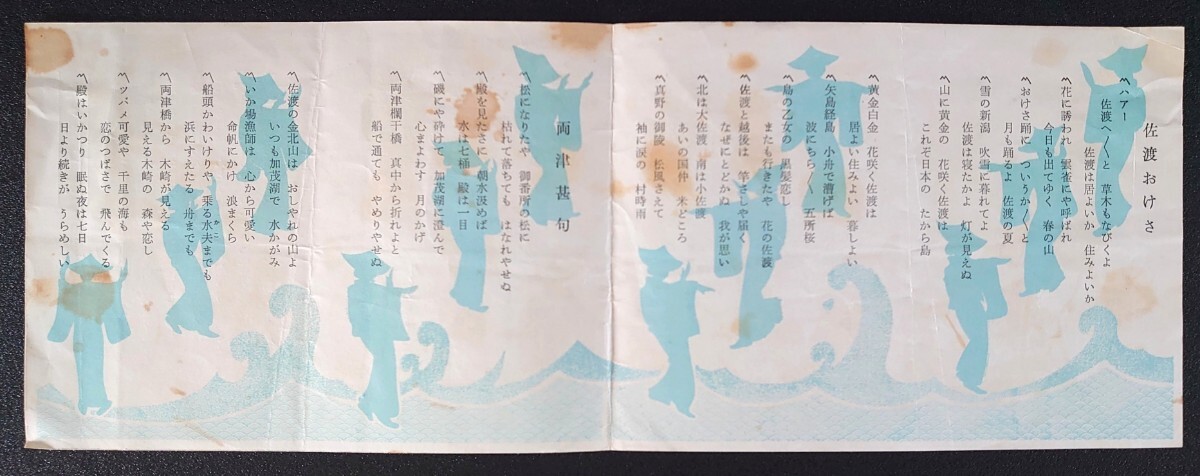 佐渡おけさ
〽ハアー
佐渡へ〳〵と 草木もなびくよ
佐渡は居よいか 住みよいか
〽花に誘われ 雲雀にや呼ばれ
今日も出てゆく 春の山
〽おけさ踊に ついうか〳〵と
月も踊るよ 佐渡の夏
〽雪の新潟 吹雪に暮れてよ
佐渡は寝たかよ 灯が見えぬ
〽山に黄金の 花咲く佐渡は
これぞ日本の たから島
〽黄金白金 花咲く佐渡は
居よい住みよい 暮しよい
〽矢島経島 小舟で漕げば
波にちら〳〵 五所桜
〽島の乙女の 黒髪恋し
またも行きたや 花の佐渡
〽佐渡と越後は 竿さしや届く
なぜにとどかぬ 我が思い
〽北は大佐渡 南は小佐渡
あいの国仲 米どころ
〽真野の御陵 松風さえて
袖に涙の 村時雨
両津甚句
〽松になりたや 御番所の松に
枯れて落ちても はなれやせぬ
〽殿を見たさに 朝水汲めば
水は七桶 殿は一目
〽磯にや砕けて 加茂湖に澄んで
心まよわす 月のかげ
〽両津欄干橋 真中から折れよと
船で通ても やめりやせぬ
〽佐渡の金北山は おしやれの山よ
いつも加茂湖で 水かがみ
〽いか場漁師は 心から可愛い
命帆にかけ 浪まくら
〽船頭かわいけりや 乗る水夫までも
かこ
浜にすえたる 舟までも
〽両津橋から 木崎が見える
見える木崎の 森や恋し
〽ツバメ可愛や 千里の海も
恋のつばさで 飛んでくる
〽殿はいかつり 眠ぬ夜は七日
日より続きが うらめしい